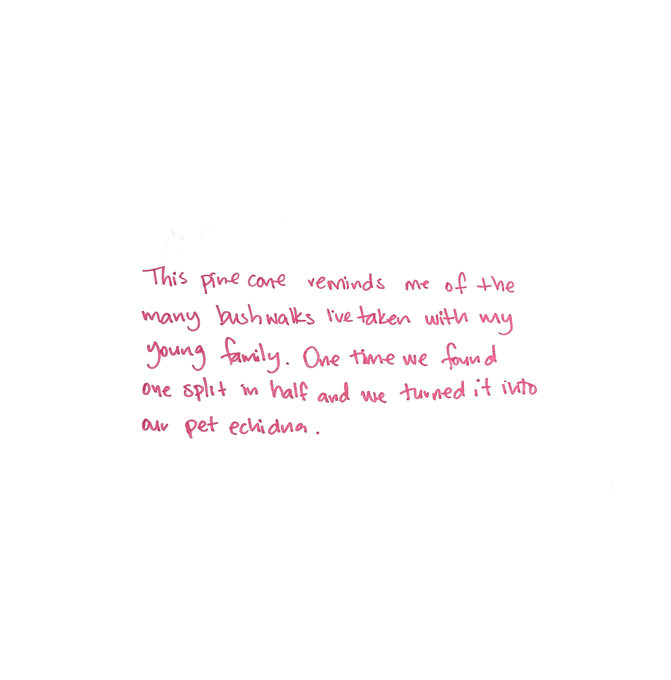 This pine cone reminds me of the
many bushwalks I've taken with my
young family. One time we found
one split in half and we turned it into
our pet echidna.